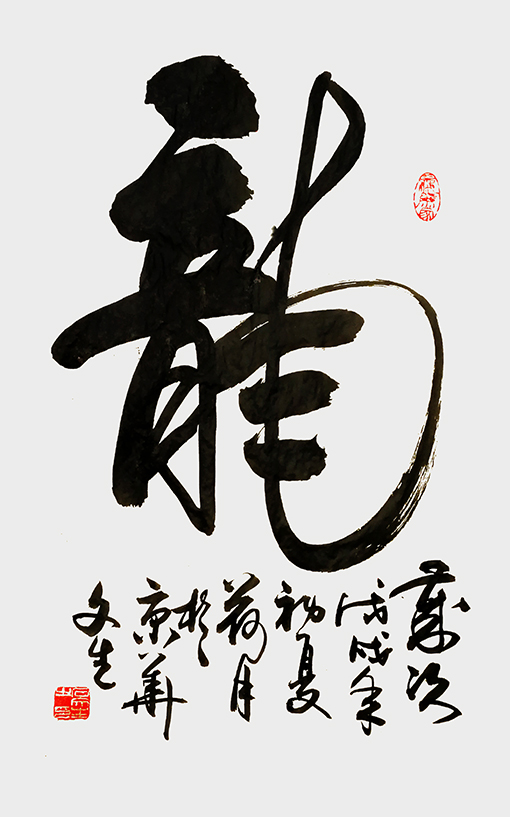 龍
歲次
戊戌年
初夏
荷月
於
京華
文生